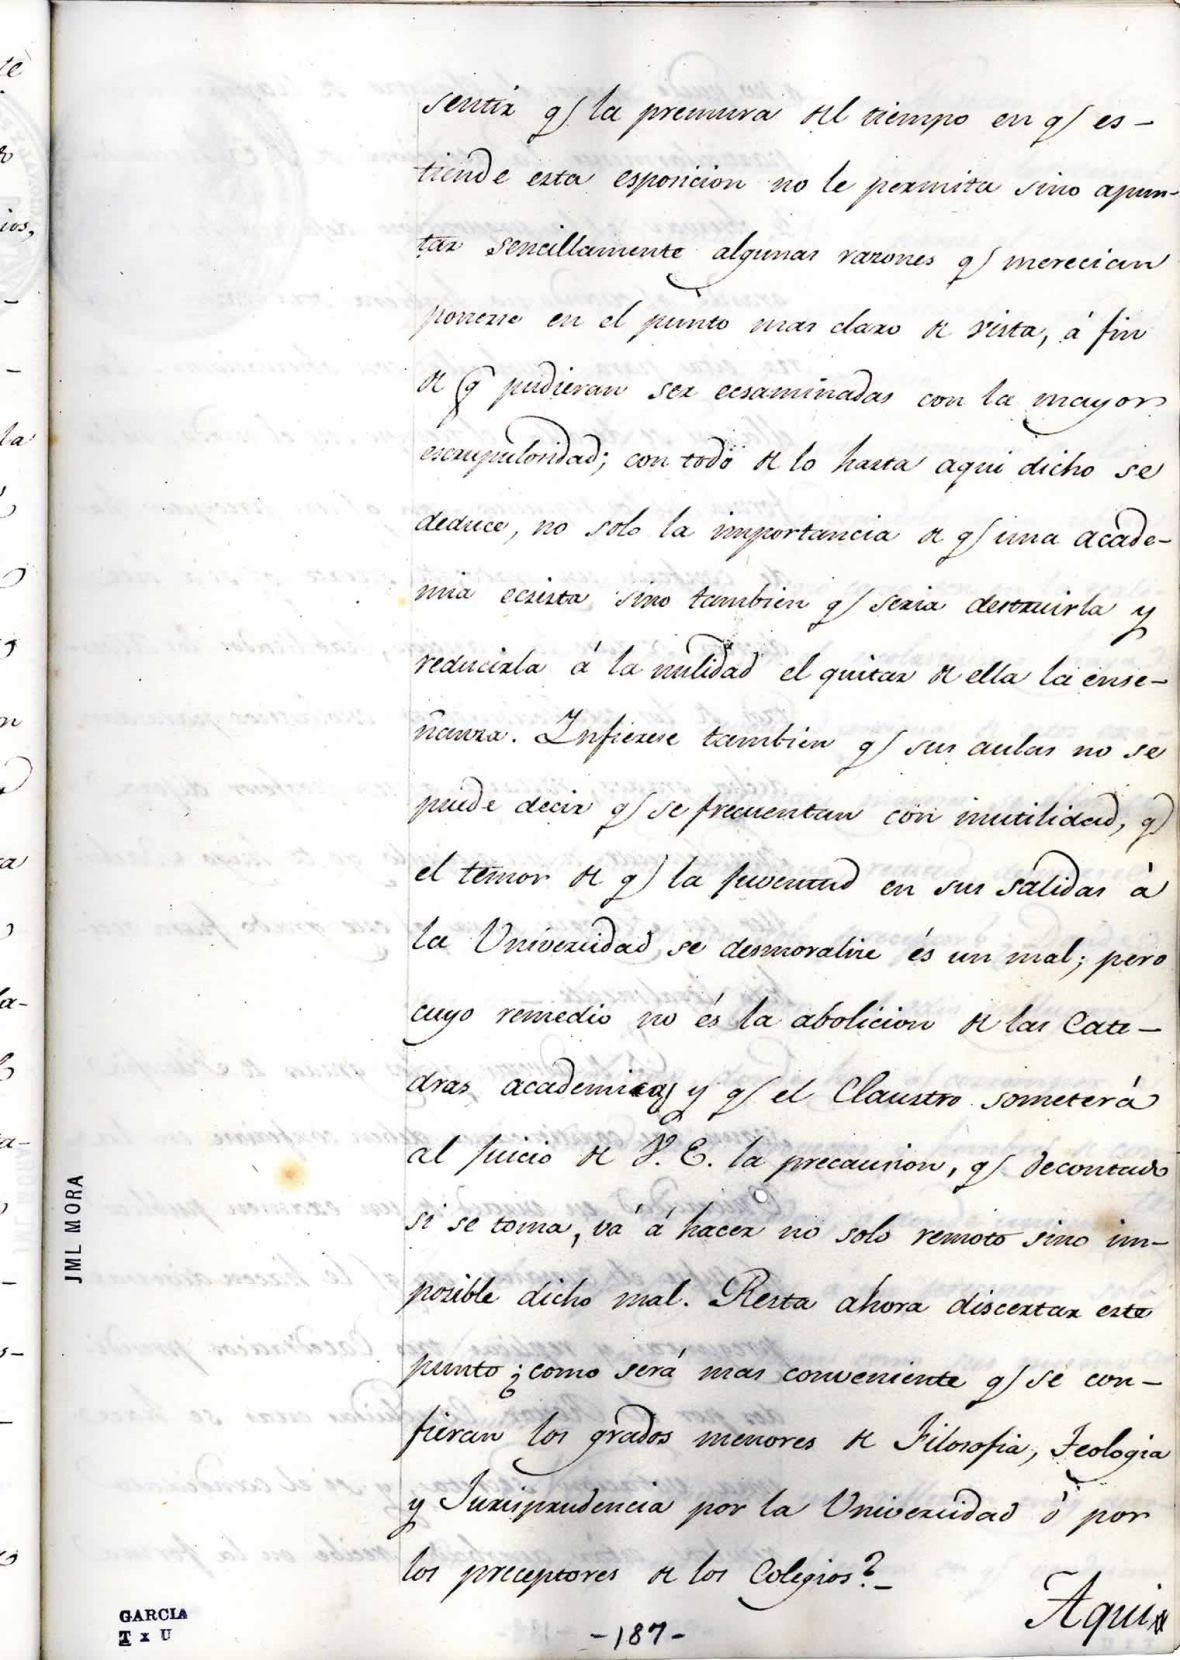 sentir q/ la premura del tiempo en q/ es-
tiende esta esposicion no le permita sino apun-
tar sencillamente algunas razones q/ merecian
ponerse en el punto mas claro de vista, á fin
de q̃ pudieran ser ecsaminadas con la mayor
escrupulosidad; con todo de lo hasta aqui dicho se
deduce, no solo la importancia de q/ una acade-
mia ecsista sino tambien q/ seria destruirla y
reducirla á la nulidad el quitar de ella la ense-
ñanza. Infierese tambien q/ sus aulas no se
puede decir q/ se frecuentan con inutilidad, q/
el temor de q/ la juventud en sus salidas á
la Universidad se desmoralise és un mal; pero
cuyo remedio no és la abolicion de las Cate-
dras academicas y q/ el Claustro someterá
al juicio de V. E. la precausion, q/ decontado
si se toma, vá á hacer no solo remoto sino im-
posible dicho mal. Resta ahora discertar este
punto ¿como será mas conveniente q/ se con-
fieran los grados menores de Filosofia, Teologia
y Jurisprudencia por la Universidad ó por
los preceptores de los Colegios?_
Aqui
-187-
JML MORA
GARCIA
T x U
te
ios,
la
n
a
la-
ta-
s-